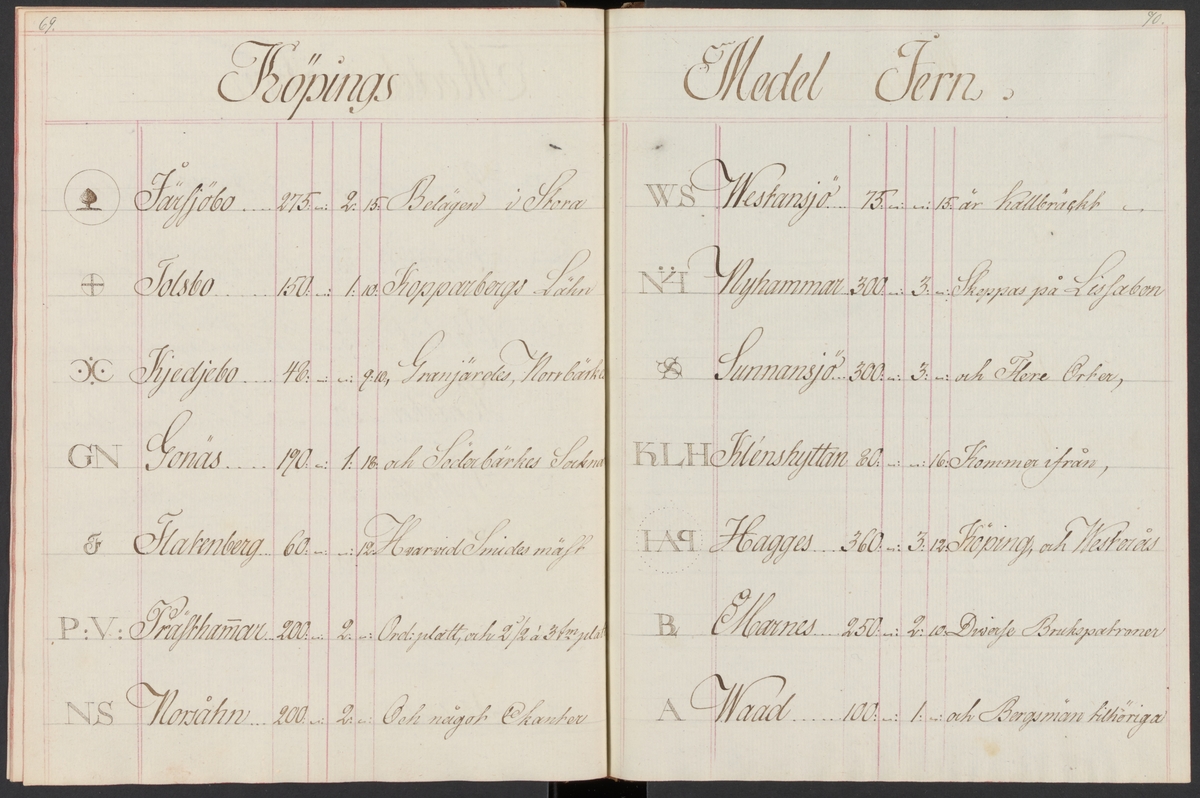 69.
Köpings
Färsjöbo .... 275. „: 2: 15: Belägen i Stora
Tolsbo ...... 150. „: 1: 10: Kopparbergs Lähn
Kjedjebo ..... 46: „: „: 9: 10, Granjärdes, Norrbärke
GN Gonäs ..... 190. „: 1: 18: och Söderbärkes Sockna
Flatenberg .. 60: „: „: 12: Hvarvid Smides mäst
P:V: Prästhammar .. 200: „: 2: „: Ord: plått, och 2 1/2 à 3 tm plått
NS Norsåhn ... 200: „: 2: „: Och något Ekanter
70.
Medel Jern.
WS Westansjö ... 75: „: „: 15: är kallbräckt
NH Nyhammar 300: „: 3: „: Skeppas på Lissabon
S Sunnansjö 300: „: 3: „: och Flere Orter,
KLH Klénshyttan 80: „: „: 16: Kommer ifrån,
Hagges ... 360: „: 3: 12: Köping, och Westerås
B Marnes ... 250: „: 2: 10: Diverse Brukspatroner
A Waad ..... 100: „: 1: „: och Bergsmän tilhöriga